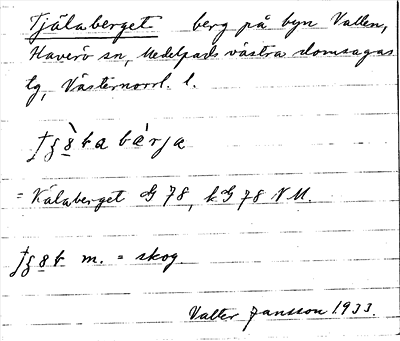 Tjälaberget berg på byn Vallen,
Haverö sn, Medelpads västra domsagas
tg, Västernorrl. l.
bærja
= Kälaberget G 78, k G 78 N M.
m. = skog.
Valter Jansson 1933.